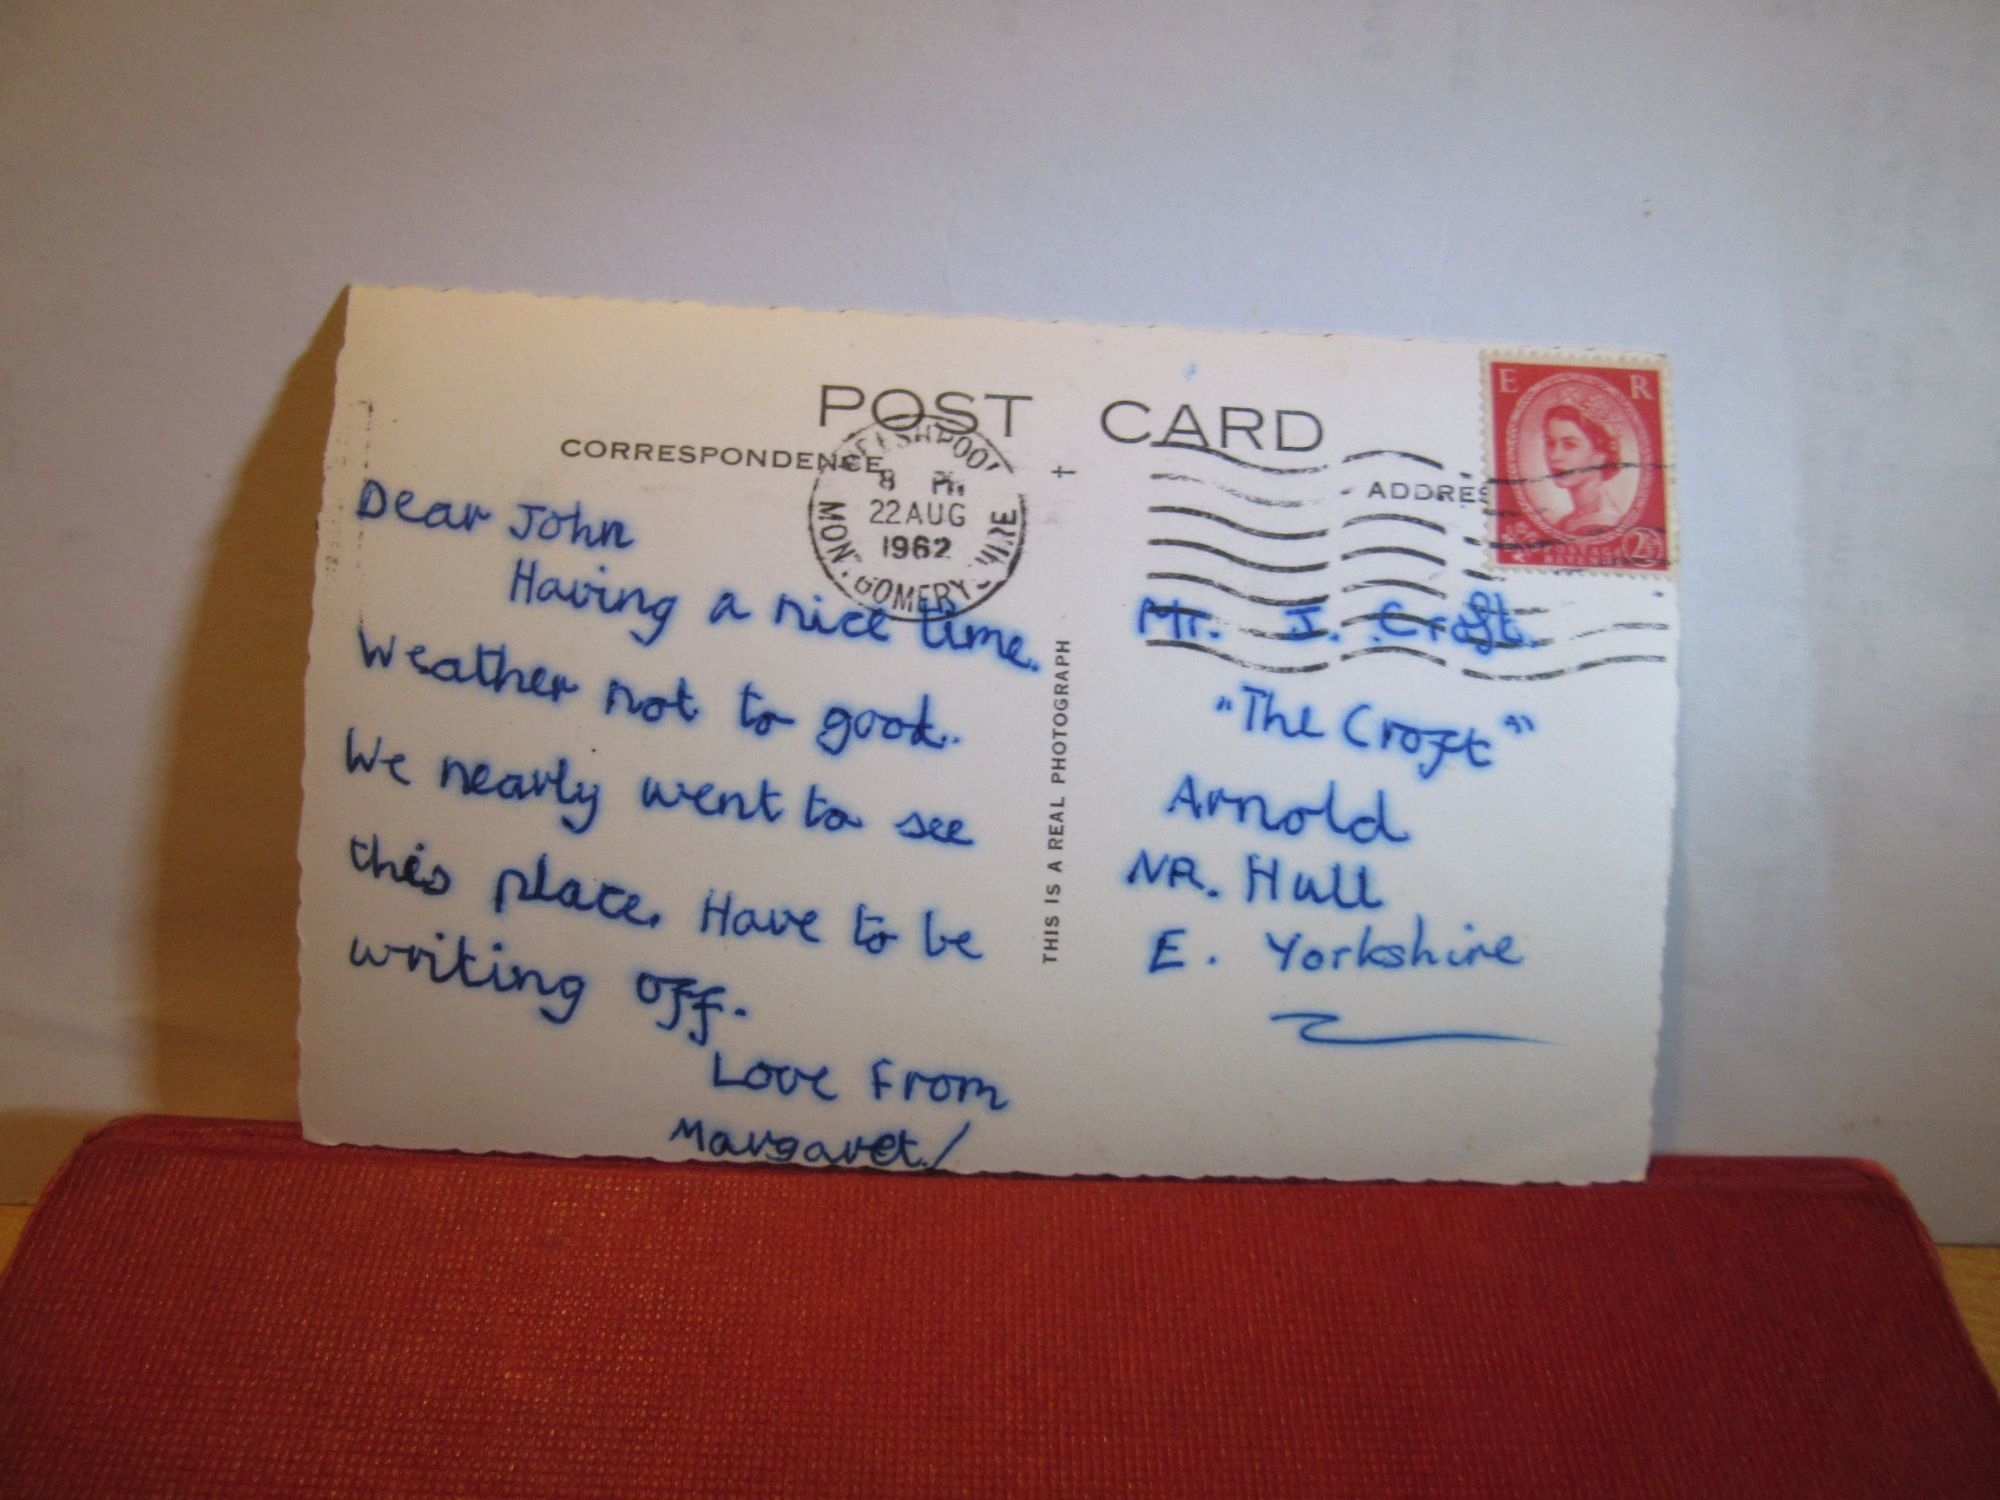 POST CARD
CORRESPONDENCE
ADDRES
WELSHPOOL
8 PM
22 AUG
1962
MONTGOMERYSHIRE
E R
POSTAGE
REVENUE
2½
Dear John
Having a nice time.
Weather not to good.
We nearly went to see
this place. Have to be
writing off.
Love From
Margaret/
THIS IS A REAL PHOTOGRAPH
Mr. J. Croft.
"The Croft"
Arnold
NR. Hull
E. Yorkshire